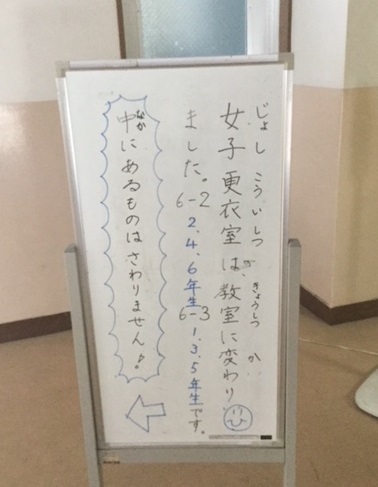 じょし こういしつ きょうしつ か
女子更衣室は教室に変わり
ました。6-2 2、4、6年生 6-3 1、3、5年生です。
なか
中にあるものはさわりません♪